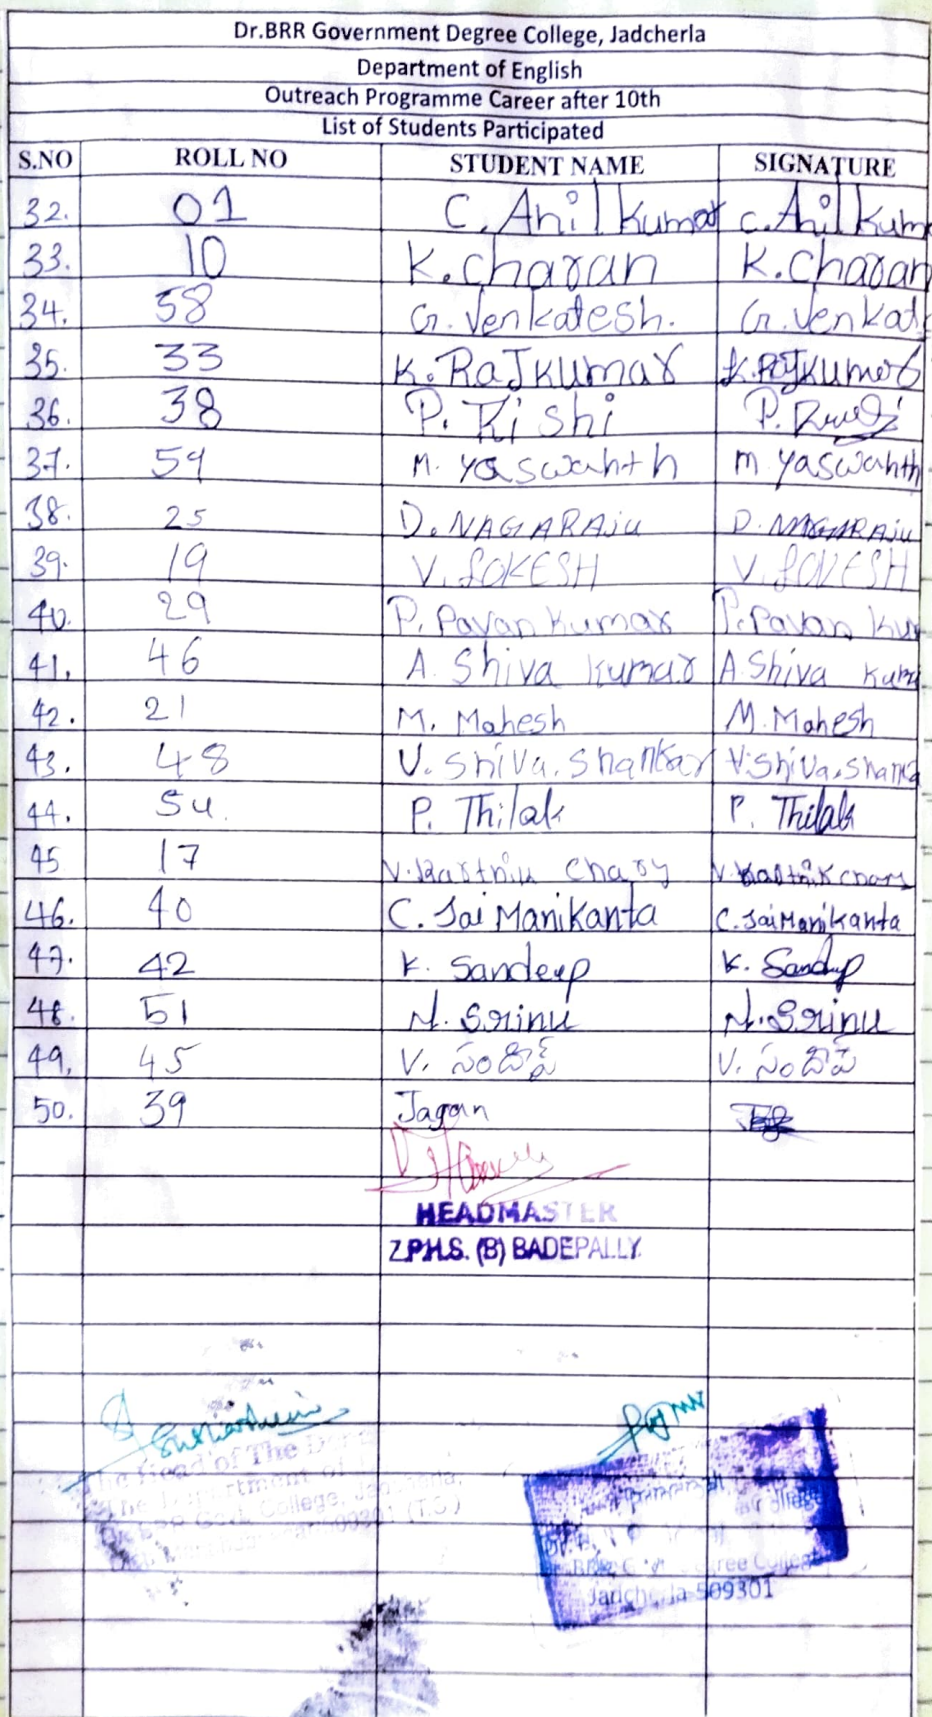 Dr.BRR Government Degree College, Jadcherla
Department of English
Outreach Programme Career after 10th
List of Students Participated
S.NO ROLL NO STUDENT NAME SIGNATURE
32. 01 C. Anil Kumar C. Anil Kum
33. 10 K. charan K. charan
34. 58 G. Venkatesh. G. Venkat
35. 33 K. RaJkumar K. RaJkumar
36. 38 P. Rishi P.
37. 59 M. yaswanth m yaswanth
38. 25 D. NAGARAJU D. NAGARAJU
39. 19 V. LOKESH V. LOKESH
40. 29 P. Pavan Kumar P. Pavan Ku
41. 46 A. Shiva Kumar A. Shiva Kum
42. 21 M. Mahesh M. Mahesh
43. 48 V. Shiva. Shankar V. Shiva. Shanka
44. 54. P. Thilak P. Thilak
45 17 V. Karthik Chary V. Karthik chary
46. 40 C. Sai Manikanta C. Sai Manikanta
47. 42 K. Sandeep K. Sandeep
48. 51 N. Srinu N. Srinu
49. 45 V. V.
50. 39 Jagan
HEADMASTER
Z.P.H.S. (B) BADEPALLY.
The Head of The
College, Jadcherla,
(T.S)
Principal
Jadcherla-509301